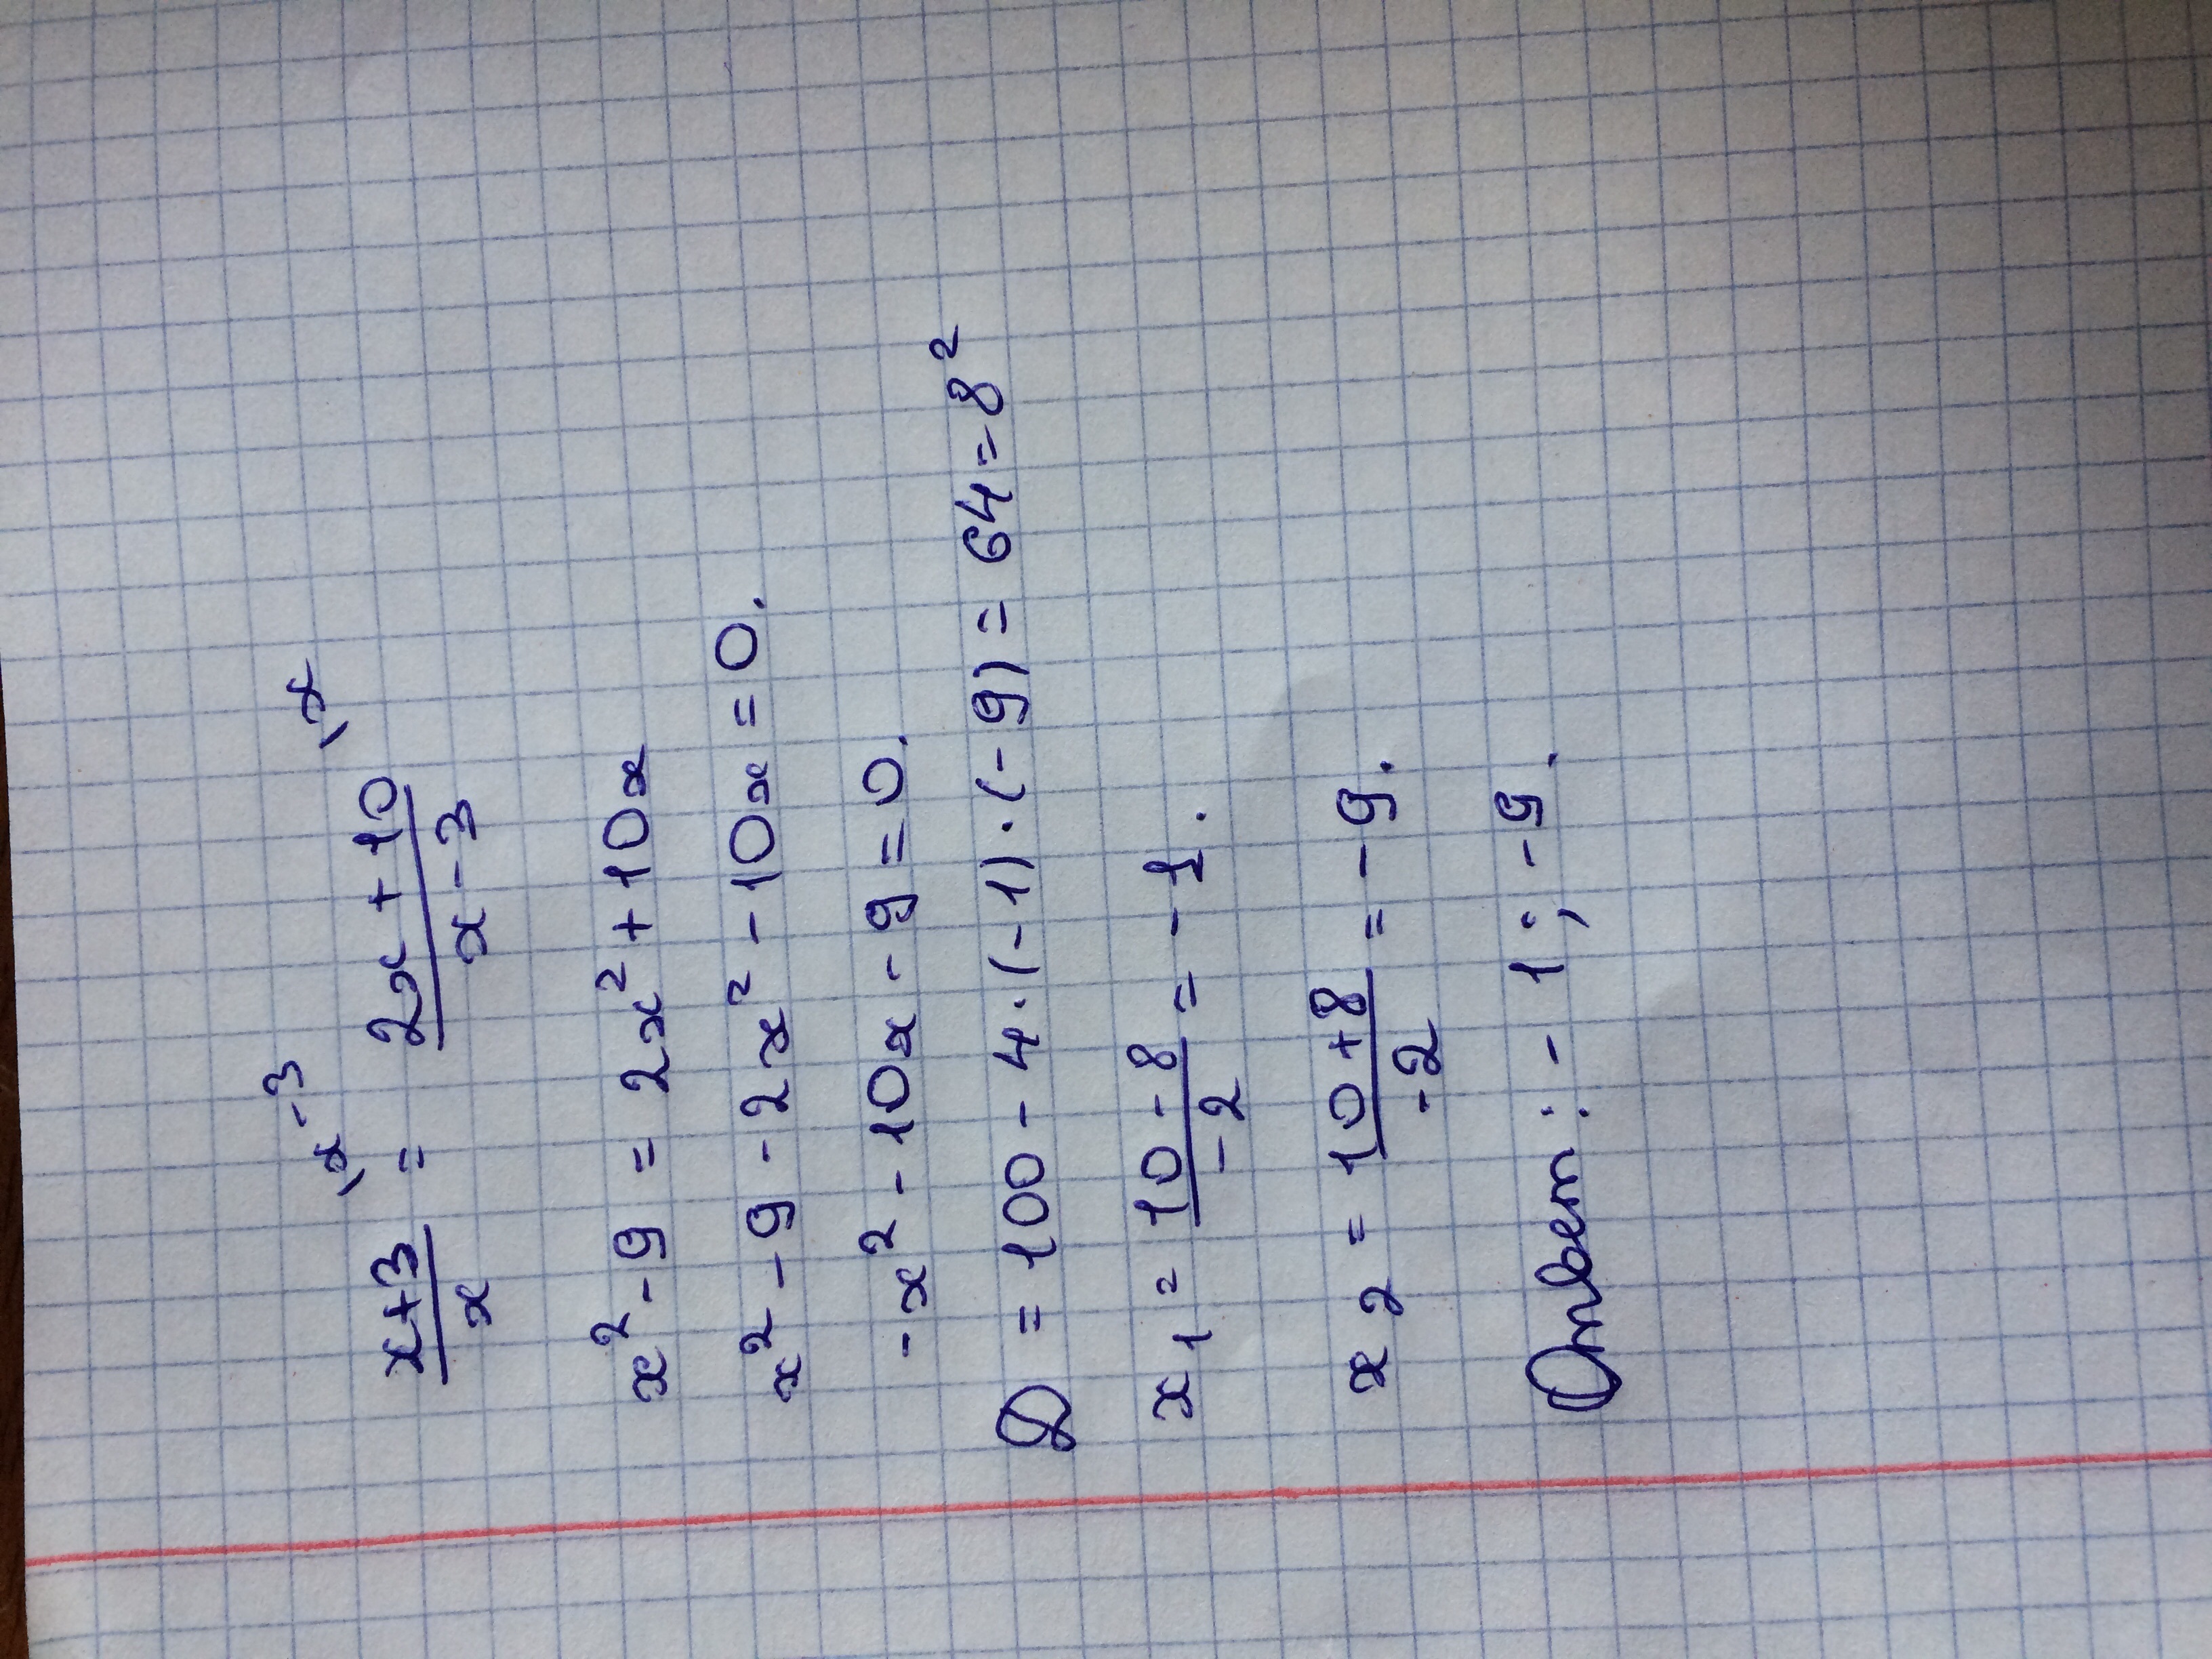 \x-3 \x
x+3/x = 2x+10/x-3
x² - 9 = 2x² + 10x
x² - 9 - 2x² - 10x = 0.
-x² - 10x - 9 = 0.
D = 100 - 4·(-1)·(-9) = 64 = 8²
x₁ = 10-8/-2 = -1.
x₂ = 10+8/-2 = -9.
Ответ: -1; -9.